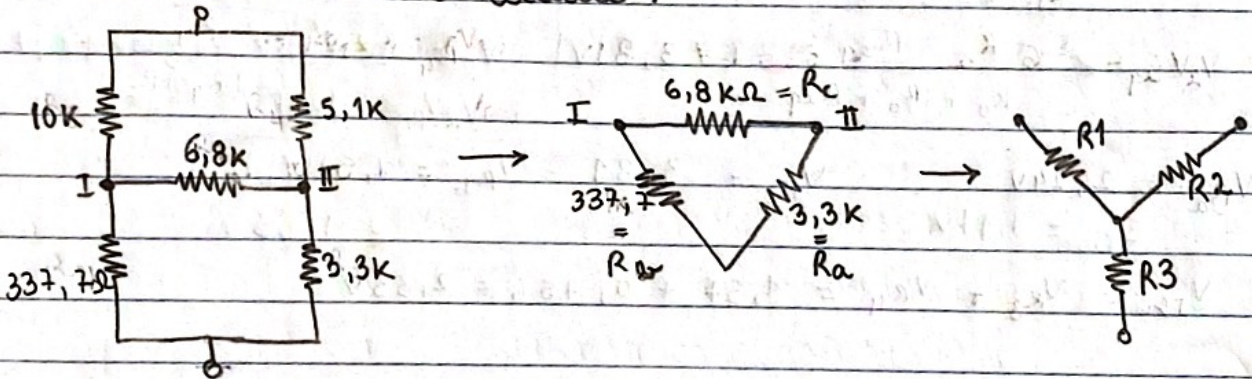 P
10K
5,1K
6,8K
I
II
337,7Ω
3,3K
I
6,8KΩ = Rc
II
337,7
=
3,3K
=
Ra
R1
R2
R3